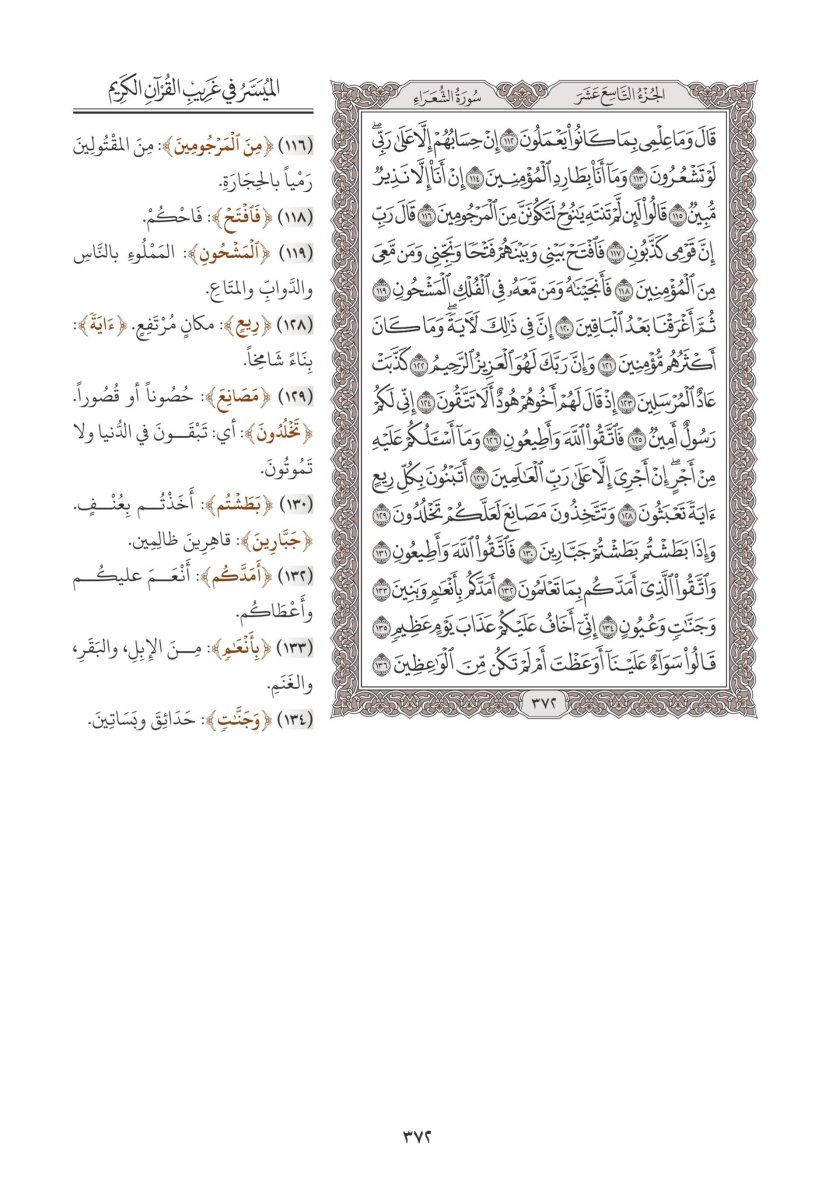 الجُزْءُ التَّاسِعَ عَشَرَ
سُورَةُ الشُّعَرَاءِ
قَالَ وَمَا عِلْمِى بِمَا كَانُواْ يَعْمَلُونَ ١١٢ إِنْ حِسَابُهُمْ إِلَّا عَلَىٰ رَبِّىۖ
لَوْ تَشْعُرُونَ ١١٣ وَمَآ أَنَا۠ بِطَارِدِ ٱلْمُؤْمِنِينَ ١١٤ إِنْ أَنَا۠ إِلَّا نَذِيرٌ
مُّبِينٌ ١١٥ قَالُواْ لَئِن لَّمْ تَنتَهِ يَٰنُوحُ لَتَكُونَنَّ مِنَ ٱلْمَرْجُومِينَ ١١٦ قَالَ رَبِّ
إِنَّ قَوْمِى كَذَّبُونِ ١١٧ فَٱفْتَحْ بَيْنِى وَبَيْنَهُمْ فَتْحًا وَنَجِّنِى وَمَن مَّعِىَ
مِنَ ٱلْمُؤْمِنِينَ ١١٨ فَأَنجَيْنَٰهُ وَمَن مَّعَهُۥ فِى ٱلْفُلْكِ ٱلْمَشْحُونِ ١١٩
ثُمَّ أَغْرَقْنَا بَعْدُ ٱلْبَاقِينَ ١٢٠ إِنَّ فِى ذَٰلِكَ لَأٓيَةًۖ وَمَا كَانَ
أَكْثَرُهُم مُّؤْمِنِينَ ١٢١ وَإِنَّ رَبَّكَ لَهُوَ ٱلْعَزِيزُ ٱلرَّحِيمُ ١٢٢ كَذَّبَتْ
عَادٌ ٱلْمُرْسَلِينَ ١٢٣ إِذْ قَالَ لَهُمْ أَخُوهُمْ هُودٌ أَلَا تَتَّقُونَ ١٢٤ إِنِّى لَكُمْ
رَسُولٌ أَمِينٌ ١٢٥ فَٱتَّقُواْ ٱللَّهَ وَأَطِيعُونِ ١٢٦ وَمَآ أَسْـَٔلُكُمْ عَلَيْهِ
مِنْ أَجْرٍۖ إِنْ أَجْرِىَ إِلَّا عَلَىٰ رَبِّ ٱلْعَٰلَمِينَ ١٢٧ أَتَبْنُونَ بِكُلِّ رِيعٍ
ءَايَةً تَعْبَثُونَ ١٢٨ وَتَتَّخِذُونَ مَصَانِعَ لَعَلَّكُمْ تَخْلُدُونَ ١٢٩
وَإِذَا بَطَشْتُم بَطَشْتُمْ جَبَّارِينَ ١٣٠ فَٱتَّقُواْ ٱللَّهَ وَأَطِيعُونِ ١٣١
وَٱتَّقُواْ ٱلَّذِىٓ أَمَدَّكُم بِمَا تَعْلَمُونَ ١٣٢ أَمَدَّكُم بِأَنْعَٰمٍ وَبَنِينَ ١٣٣
وَجَنَّٰتٍ وَعُيُونٍ ١٣٤ إِنِّىٓ أَخَافُ عَلَيْكُمْ عَذَابَ يَوْمٍ عَظِيمٍ ١٣٥
قَالُواْ سَوَآءٌ عَلَيْنَآ أَوَعَظْتَ أَمْ لَمْ تَكُن مِّنَ ٱلْوَٰعِظِينَ ١٣٦
٣٧٢
المُيَسَّرُ في غَرِيبِ القُرْآنِ الكَرِيم
(١١٦) ﴿مِنَ ٱلْمَرْجُومِينَ﴾: مِنَ المَقْتُولِينَ
رَمْياً بالحِجَارَةِ.
(١١٨) ﴿فَٱفْتَحْ﴾: فَاحْكُمْ.
(١١٩) ﴿ٱلْمَشْحُونِ﴾: المَمْلُوءِ بالنَّاسِ
والدَّوابِّ والمتَاعِ.
(١٢٨) ﴿رِيعٍ﴾: مكانٍ مُرْتَفِعٍ. ﴿ءَايَةً﴾:
بِنَاءً شَامِخاً.
(١٢٩) ﴿مَصَانِعَ﴾: حُصُوناً أو قُصُوراً.
﴿تَخْلُدُونَ﴾: أي: تَبْقَـونَ في الدُّنيا ولا
تَمُوتُونَ.
(١٣٠) ﴿بَطَشْتُم﴾: أَخَذْتُـم بِعُنْـفٍ.
﴿جَبَّارِينَ﴾: قاهِرِينَ ظالِمِين.
(١٣٢) ﴿أَمَدَّكُم﴾: أَنْعَـمَ عليكُـم
وأَعْطَاكُم.
(١٣٣) ﴿بِأَنْعَٰمٍ﴾: مِـنَ الإِبِلِ، والبَقَرِ،
والغَنَمِ.
(١٣٤) ﴿وَجَنَّٰتٍ﴾: حَدَائِقَ وبَسَاتِينَ.
٣٧٢